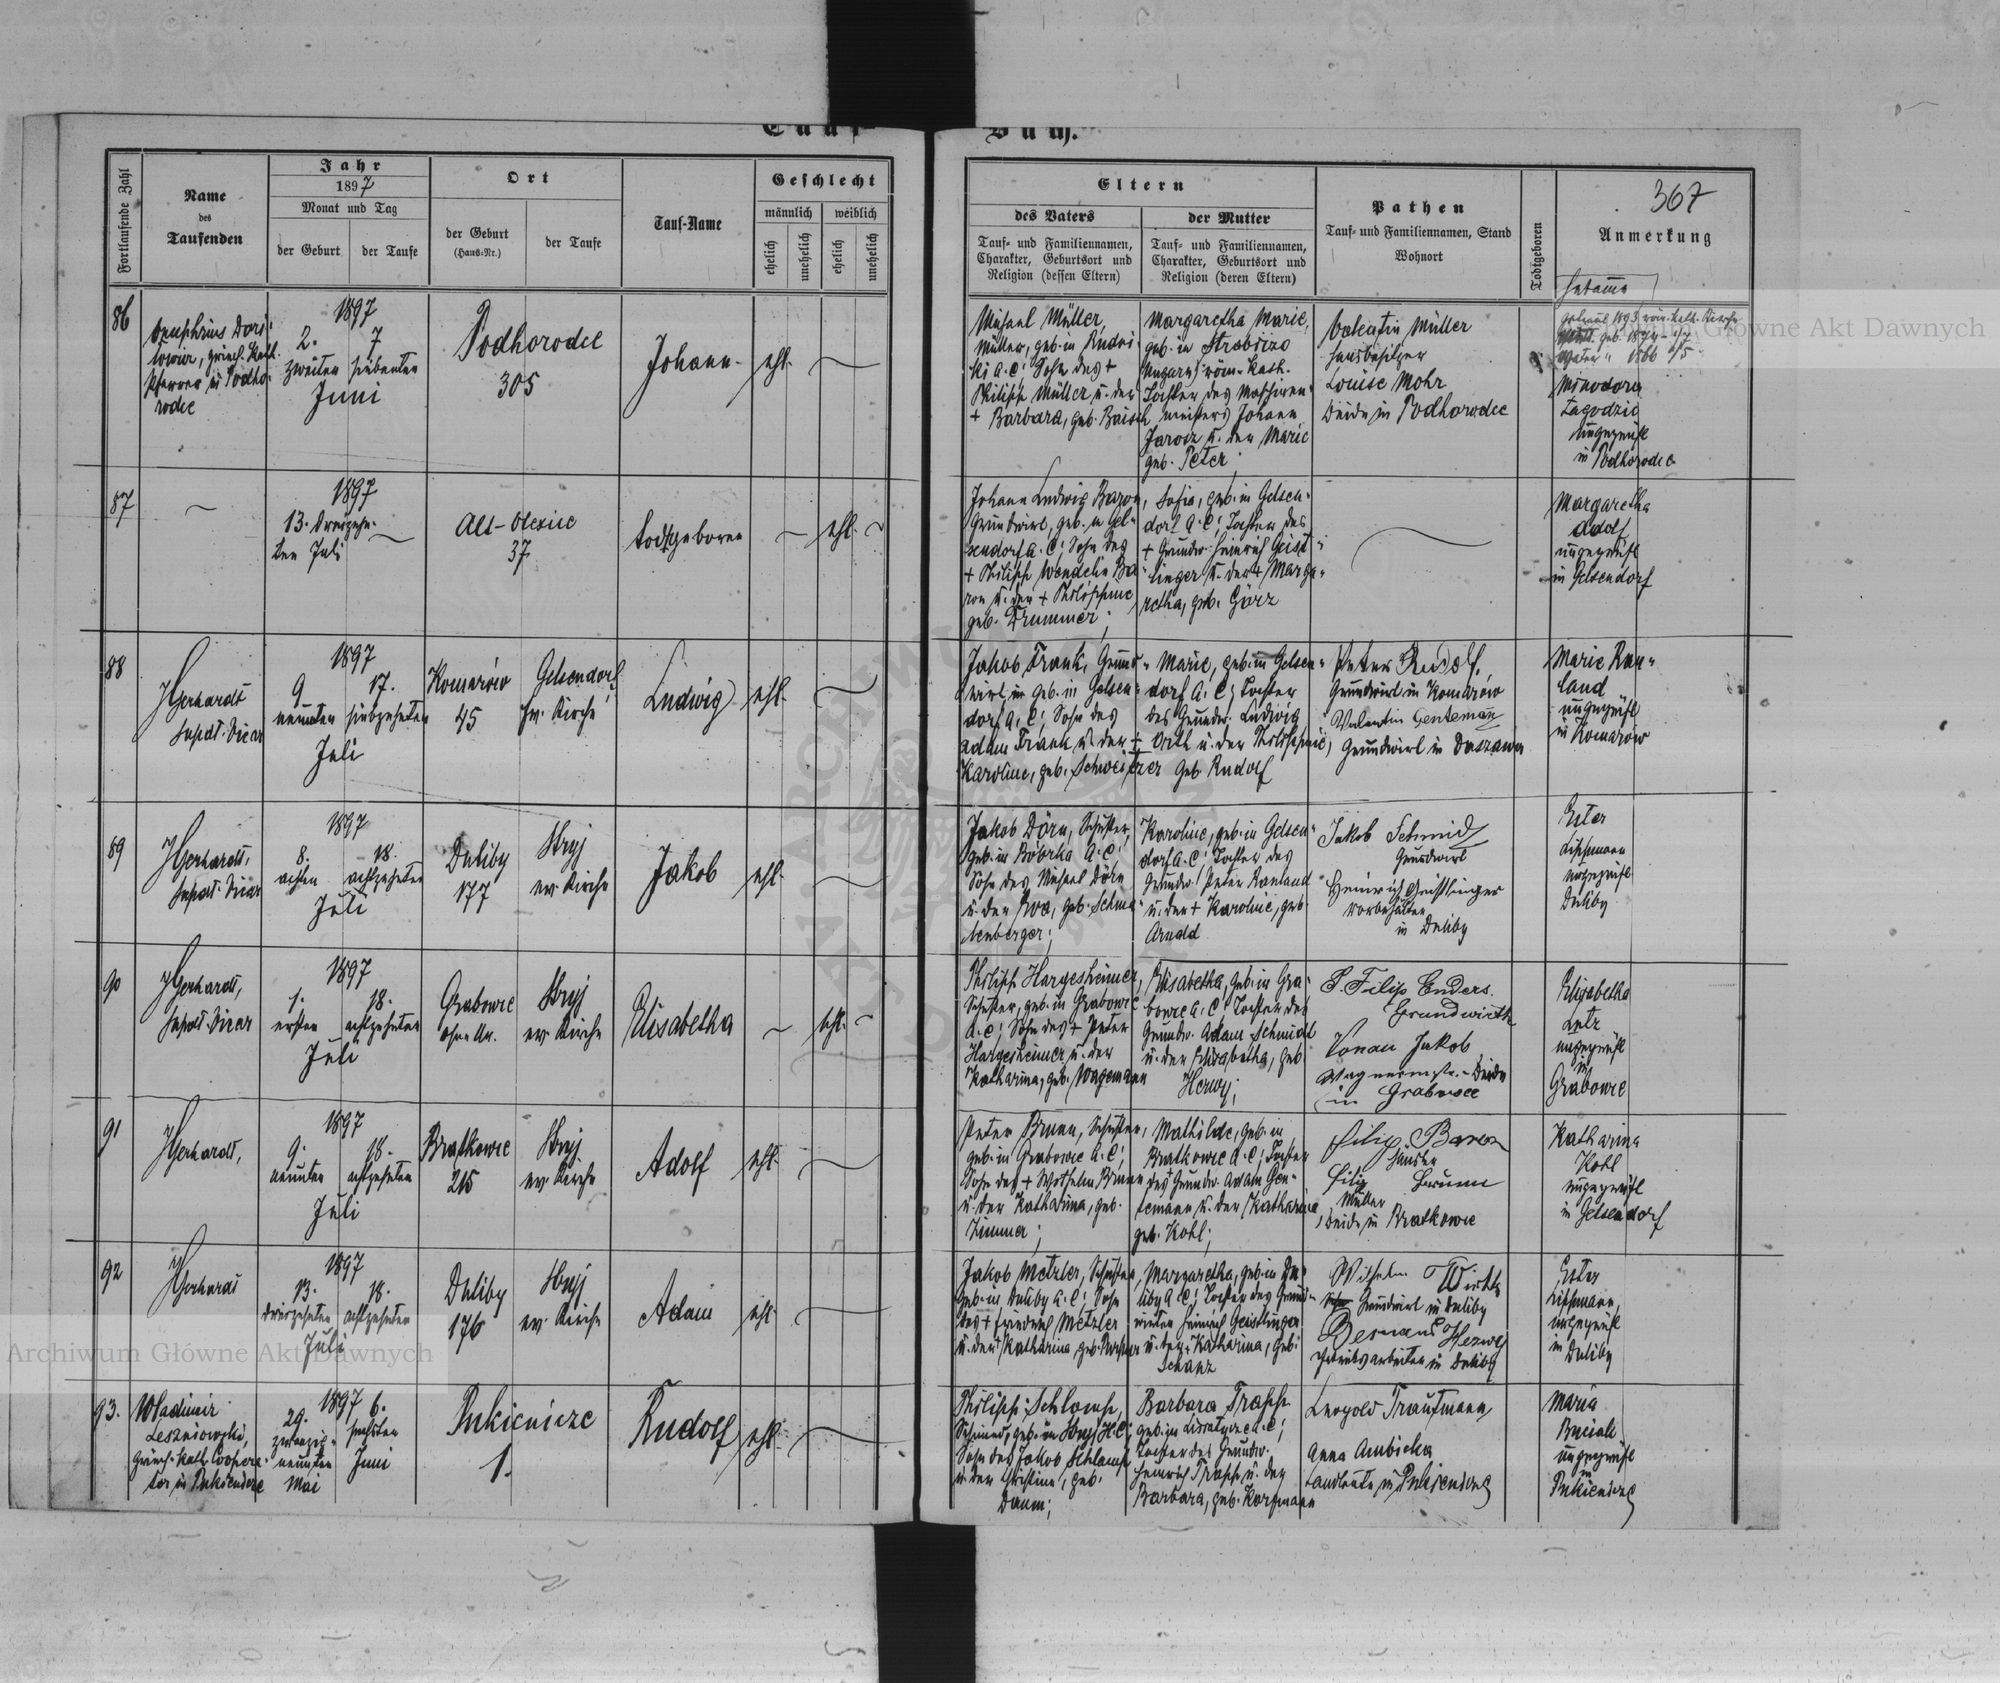 Tauf-
Buch.
Fortlaufende Zahl
Name
des
Taufenden
Jahr
1897
Monat und Tag
der Geburt
der Taufe
Ort
der Geburt
(Haus-Nr.)
der Taufe
Tauf-Name
Geschlecht
männlich
weiblich
ehelich
unehelich
ehelich
unehelich
Eltern
des Vaters
Tauf- und Familiennamen,
Charakter, Geburtsort und
Religion (dessen Eltern)
der Mutter
Tauf- und Familiennamen,
Charakter, Geburtsort und
Religion (deren Eltern)
Pathen
Tauf- und Familiennamen, Stand
Wohnort
Todtgeboren
367
Anmerkung
Hebamme
86
Onuphrius
griech. Kath.
Pfarrer in Podho-
rodce
1897
2. 7
zweiten siebenten
Juni
Podhorodce
305
Johann
ehl.
Michael Müller,
Müller, geb. in
A. C; Sohn des +
Philipp Müller u. der
+ Barbara, geb. Baisch
Margaretha Marie,
geb. in
Ungarn röm-kath.
Tochter des Maschinen-
meisters Johann
Jarosz u. der Marie
geb. Peter;
Valentin Müller
Hausbesitzer
Louise Mohr
beide in Podhorodce
getraut 1893 röm. kath. Kirche
geb. 1874
Vater " 1866
Minodora
Łagodzic
ungeprüft
in Podhorodce
87
1897
13. dreizehn-
ten Juli
Alt-Olexice
37
todtgeboren
ehl.
Johann Ludwig Baron,
Grundwirt, geb. in Gel-
sendorf A. C; Sohn des
+ Philipp Wendelin Ba-
ron u. der + Philippine
geb. Drummer;
Sofia, geb. in Gelsen-
dorf A. C; Tochter des
+ Grundw. Heinrich Geist-
linger u. der + Marga-
retha, geb. Görz
Margaretha
Adolf
ungeprüft
in Gelsendorf
88
JGerhardt
Supdt. Vicar
1897
9 17.
neunten siebzehnten
Juli
Komarów
45
Gelsendorf
Ev. Kirche
Ludwig
ehl.
Jakob Frank, Grund-
wirt in geb. in Gelsen-
dorf A. C; Sohn des
Adam Frank u. der +
Karoline, geb. Schweitzer
Marie, geb. in Gelsen-
dorf A. C; Tochter
des Grundw. Ludwig
Orth u. der Philippine,
geb. Rudolf
Peter Rudolf,
Grundwirt in Komarów
Valentin Gentemann
Grundwirt in Daszawa
Marie Rau-
land
ungeprüft
in Komarów
89
JGerhardt,
Supdt. Vicar
1897
8. 18.
achten achtzehnten
Juli
Duliby
177
Stryj
ev. Kirche
Jakob
ehl.
Jakob Dörn, Schuster,
geb. in Bóbrka A. C;
Sohn des Michael Dörn
u. der Eva, geb.
Karoline, geb. in Gelsen-
dorf A. C; Tochter des
Grundw. Peter Rauland
u. der + Karoline, geb.
Arndd
Jakob Schmid
Grundwirt
Heinrich Geistlinger
in Duliby
Ester
Lippmann
ungeprüft
Duliby
90
JGerhardt,
Supdt. Vicar
1897
1. 18.
ersten achtzehnten
Juli
Grabowce
ohne Nr.
Stryj
ev. Kirche
Elisabetha
ehl.
Philipp Hargesheimer,
Schuster, geb. in Grabowce
A. C; Sohn des + Peter
Hargesheimer u. der
Katharina, geb. Wagemann
Elisabetha, geb. in Gra-
bowce A. C; Tochter des
Grundw. Adam Schmidt
u. der Elisabetha, geb.
Herwy;
P. Filip Enders.
Grundwirth
Vonau Jakob
Wagnermstr. - beide
in Grabowce
Elisabetha
Letz
ungeprüft
in
Grabowce
91
JGerhardt,
1897
9. 18.
neunten achtzehnten
Juli
Bratkowce
215
Stryj
ev. Kirche
Adolf
ehl.
Peter Brunn, Schuster,
geb. in Grabowce A. C;
Sohn des + Wilhelm Brunn
u. der Katharina, geb.
Zimmer;
Mathilde, geb. in
Bratkowce A. C; Tochter
des Grundw. Adam Gen-
temann u. der Katharina,
geb. Kohl;
Filip Baron
Filip Brunn
Müller
beide in Bratkowce
Katharina
Kohl
ungeprüft
in Gelsendorf
92
JGerhardt
1897
13. 18.
dreizehnten achtzehnten
Juli
Duliby
176
Stryj
ev. Kirche
Adam
ehl.
Jakob Metzler, Schuster,
geb. in Duliby A. C; Sohn
des + Friedrich Metzler
u. der + Katharina, geb.
Margaretha, geb. in Du-
liby A. C; Tochter des Grund-
wirten Heinrich Geistlinger
u. der + Katharina, geb.
Schanz
Wilhelm Wirth
Grundwirt in Duliby
Bernard Herwy
Fabriksarbeiter in Duliby
Ester
Lippmann,
ungeprüft
in Duliby
93.
Wladimir
Lesniowski,
Griech-Kath. Coopera-
tor in Pukienicze
1897
29. 6.
zwanzig- sechsten
neunten Juni
Mai
Pukienicze
1.
Rudolf
ehl.
Philipp Schlamp,
Schmied, geb. in Stryj H. C;
Sohn des Jakob Schlamp
u. der Christine, geb.
Daum;
Barbara Trapp
geb. in A. C;
Tochter des Grundw.
Heinrich Trapp u. der
Barbara, geb. Korfmann
Leopold Trautmann
Anna Ambicka
Landleute in Pukienicze
Maria
ungeprüft
in
Pukienicze
Archiwum Główne Akt Dawnych
Archiwum Główne Akt Dawnych